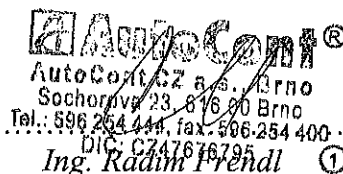 AutoCont®
AutoCont CZ a.s., Brno
Sochorova 23, 616 00 Brno
Tel.: 596 254 444, fax: 596 254 400
DIČ: CZ47676795
Ing. Radim Frendl ①